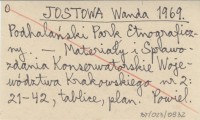 JOSTOWA Wanda 1969.
Podhalański Park Etnograficz-
ny. — Materiały i Sprawo-
zdania Konserwatorskie Woje-
wództwa Krakowskiego nr 2:
21-42, tablice, plan. Powiel.